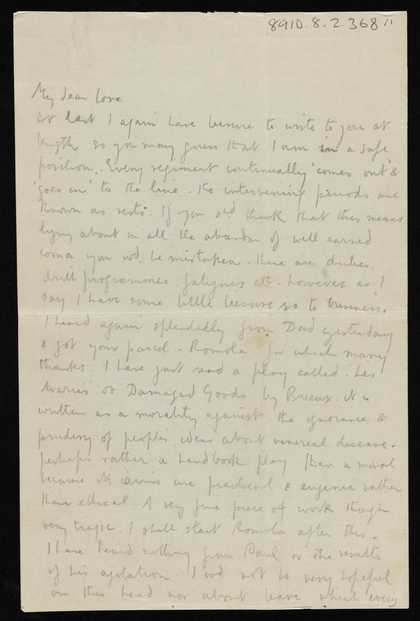 8910.8.2.368 11
My dear Love
At last I again have leisure to write to you at
length so you may guess that I am in a safe
position. Every regiment continually 'comes out' &
'goes in' to the line. The intervening periods are
known as rests. If you shd. think that this means
lying about in all the abandon of well earned
coma you wd. be mistaken. There are duties,
drill programmes, fatigues etc. However as I
say I have some little leisure so to business.
I heard again splendidly from Dad yesterday
& got your parcel - Romola for which many
thanks. I have just read a play called - Les
Avariés or Damaged Goods by Brieux. It is
written as a morality against the ignorance &
prudery of peoples ideas about venereal disease.
perhaps rather a handbook play than a moral
because its aims are practical & eugenic rather
than ethical. A very fine piece of work though
very tragic. I shall start Romola after this.
I have heard nothing from Paul or the results
of his agitation. I wd not be very hopeful
on this head nor about leave which every